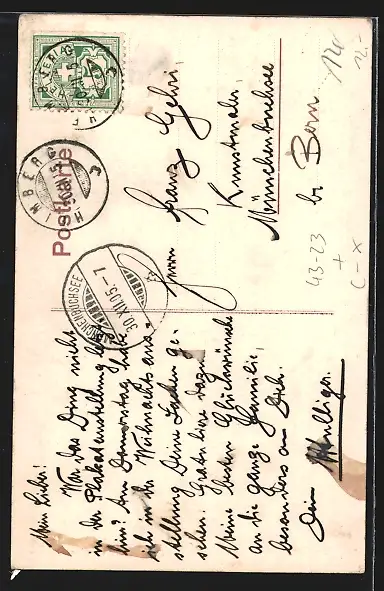 Postkarte
HIMBERG
MÜNCHENBUCHSEE
30.XII.05.-7
Herrn
Franz Gehri,
Kunstmaler,
Münchenbuchsee
b/ Bern.
Mein Lieber!
War das Ding nicht
in der Plakatausstellung letzt-
hin? Am Donnerstag habe
ich in der Weihnachtsaus-
stellung Deine Sachen ge-
sehen. Gratuliere dazu.
Meine besten Glückwünsche
an die ganze Familie,
besonders an Dich.
Dein
43-23
+
(-x
12.-